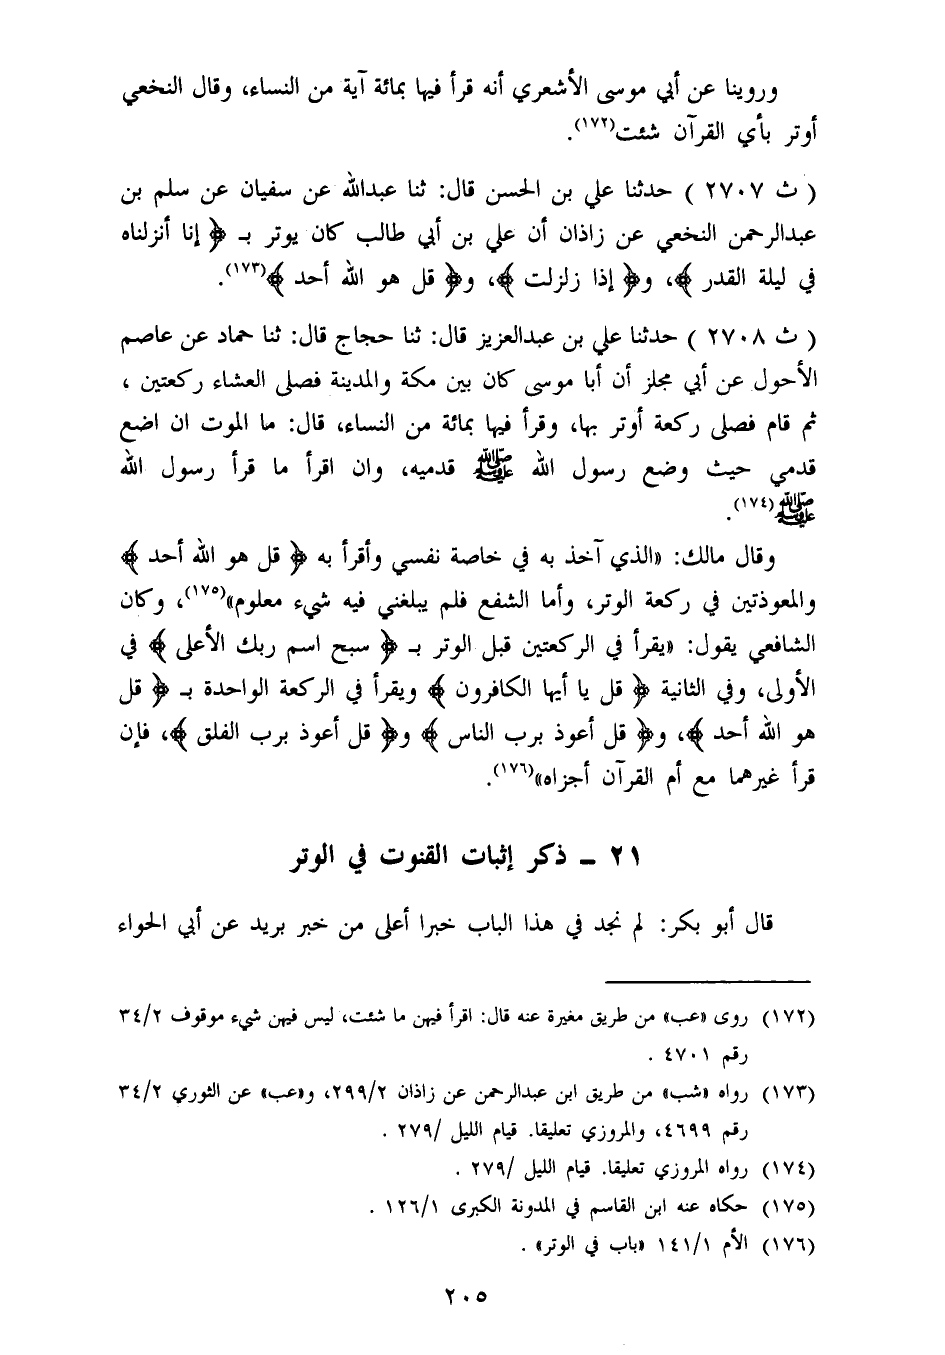 وروينا عن أبي موسى الأشعري أنه قرأ فيها بمائة آية من النساء، وقال النخعي
أوتر بأي القرآن شئت(١٧٢).
( ث ٢٧٠٧ ) حدثنا علي بن الحسن قال: ثنا عبدالله عن سفيان عن سلم بن
عبدالرحمن النخعي عن زاذان أن علي بن أبي طالب كان يوتر بـ ﴿ إنا أنزلناه
في ليلة القدر ﴾، و﴿ إذا زلزلت ﴾، و﴿ قل هو الله أحد ﴾(١٧٣).
( ث ٢٧٠٨ ) حدثنا علي بن عبدالعزيز قال: ثنا حجاج قال: ثنا حماد عن عاصم
الأحول عن أبي مجلز أن أبا موسى كان بين مكة والمدينة فصلى العشاء ركعتين ،
ثم قام فصلى ركعة أوتر بها، وقرأ فيها بمائة من النساء، قال: ما الموت ان اضع
قدمي حيث وضع رسول الله ﷺ قدميه، وان اقرأ ما قرأ رسول الله
ﷺ(١٧٤).
وقال مالك: «الذي آخذ به في خاصة نفسي وأقرأ به ﴿ قل هو الله أحد ﴾
والمعوذتين في ركعة الوتر، وأما الشفع فلم يبلغني فيه شيء معلوم»(١٧٥)، وكان
الشافعي يقول: «يقرأ في الركعتين قبل الوتر بـ ﴿ سبح اسم ربك الأعلى ﴾ في
الأولى، وفي الثانية ﴿ قل يا أيها الكافرون ﴾ ويقرأ في الركعة الواحدة بـ ﴿ قل
هو الله أحد ﴾، و﴿ قل أعوذ برب الناس ﴾ و﴿ قل أعوذ برب الفلق ﴾، فإن
قرأ غيرهما مع أم القرآن أجزاه»(١٧٦).
٢١ ـ ذكر إثبات القنوت في الوتر
قال أبو بكر: لم نجد في هذا الباب خبرا أعلى من خبر بريد عن أبي الحواء
(١٧٢) روى «عب» من طريق مغيرة عنه قال: اقرأ فيهن ما شئت، ليس فيهن شيء موقوف ٣٤/٢
رقم ٤٧٠١ .
(١٧٣) رواه «شب» من طريق ابن عبدالرحمن عن زاذان ٢٩٩/٢، و«عب» عن الثوري ٣٤/٢
رقم ٤٦٩٩، والمروزي تعليقا. قيام الليل /٢٧٩ .
(١٧٤) رواه المروزي تعليقا. قيام الليل /٢٧٩ .
(١٧٥) حكاه عنه ابن القاسم في المدونة الكبرى ١٢٦/١ .
(١٧٦) الأم ١٤١/١ «باب في الوتر» .
٢٠٥